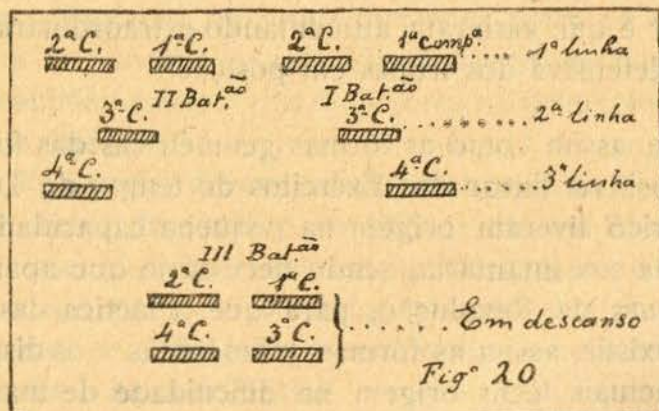 2ª C. 1ª C. 2ª C. 1ª compª ..... 1ª linha
II Bat.ᵃ̃ᵒ I Bat.ᵃ̃ᵒ
3ª C. 3ª C. .......... 2ª linha
4ª C. 4ª C. ..... 3ª linha
III Bat.ᵃ̃ᵒ
2ª C. 1ª C.
4ª C. 3ª C. ....... Em descanso
Figª 20